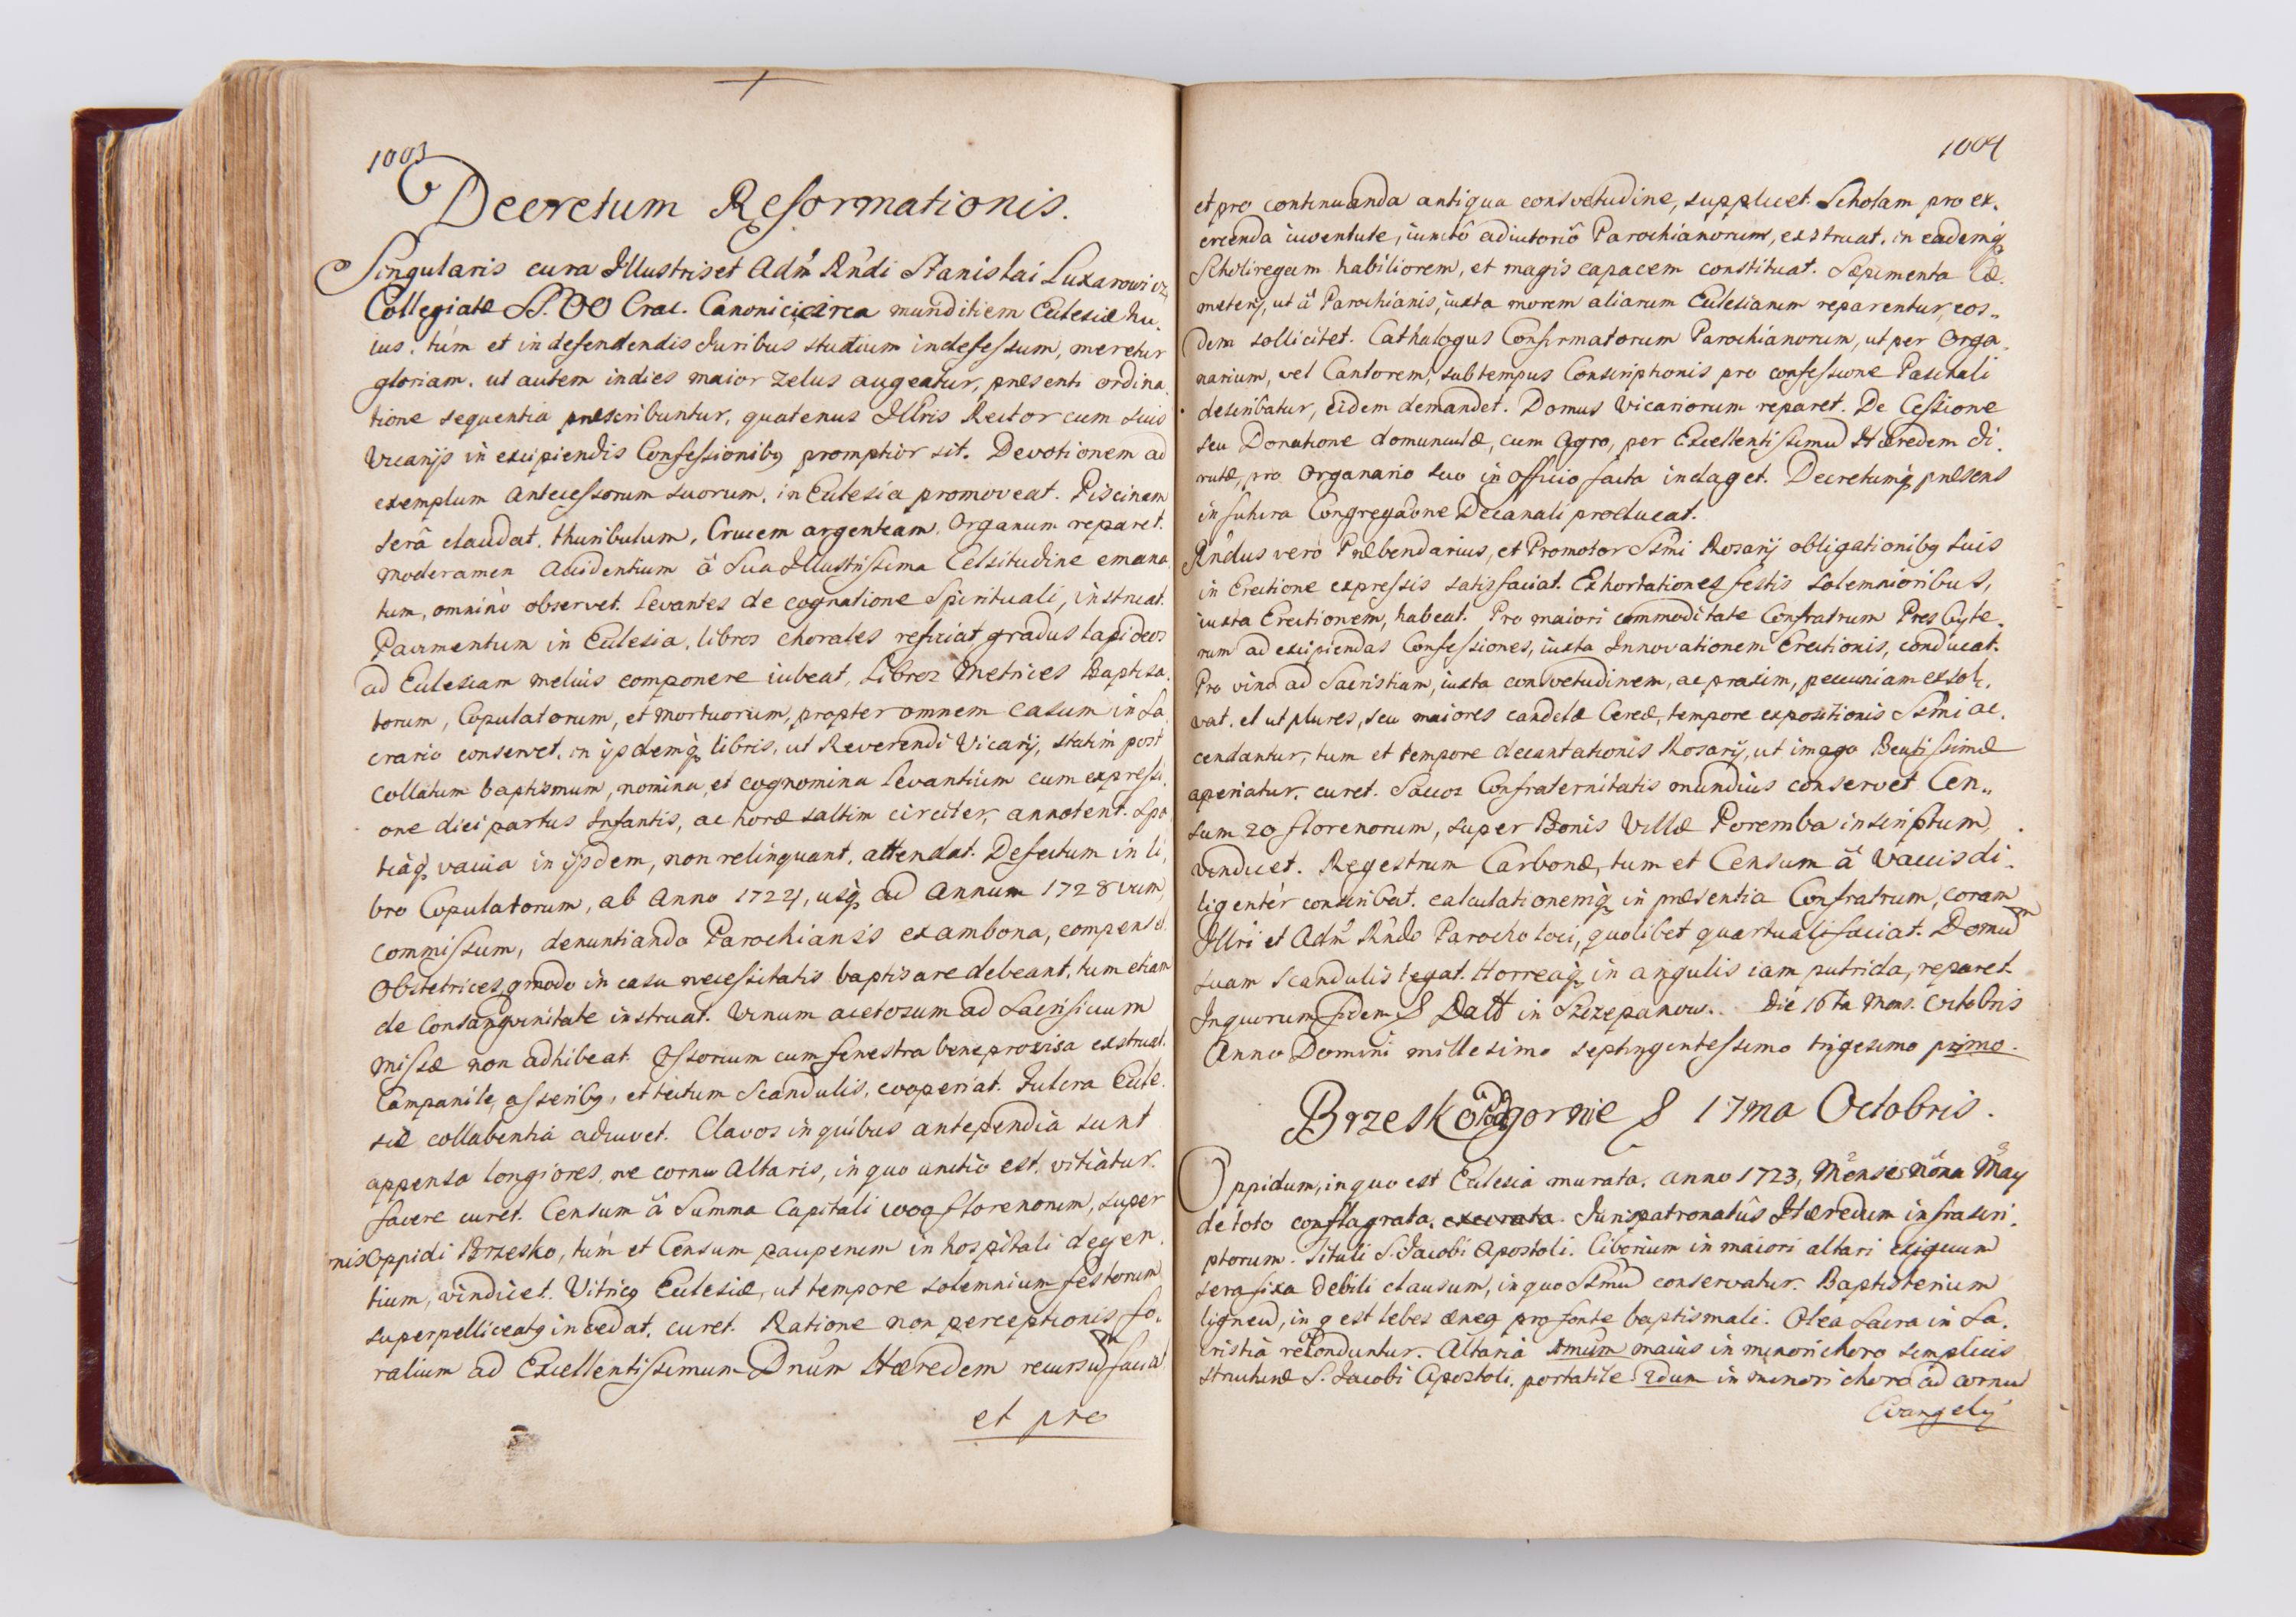 1003
Decretum Reformationis.
Singularis cura Illustris et Adm̃ Rñdi Stanislai Luxarowicz
Collegiatæ SS. OO Crac. Canonici circa munditiem Ecclesiæ hu.
ius. tùm et in defendendis Juribus studium indefessum, meretur
gloriam. ut autem indies maior zelus augeatur, præsenti ordina.
tione sequentia præscribuntur, quatenus Illris Rector cum suis
Vicarijs in excipiendis Confessionibq promptior sit. Devotionem ad
exemplum Antecessorum suorum, in Ecclesia promoveat. Piscinam
serâ claudat. thuribulum, Crucem argenteam, Organum reparet.
Moderamen Accidentium â Sua Illustrissima Celsitudine emana.
tum, omninò observet. Levantes de cognatione Spirituali, instruat.
Pavimentum in Ecclesia, libros chorales reficiat gradus lapideos
ad Ecclesiam melius componere iubeat, Libros Metrices Baptisa.
torum, Copulatorum, et Mortuorum, propter omnem casum in Sa.
crario conservet, in ijsdemq libris, ut Reverendi Vicarij, statim post
collatum baptismum, nomina, et cognomina levantium cum expressi.
one diei partus Infantis, ac horæ saltim circiter, annotent. Spa
tiaq vacua in ijsdem, non relinquant, attendat. Defectum in li.
bro Copulatorum, ab Anno 1724, usq ad Annum 1728vum,
commissum, denuntiando Parochianis ex ambona, compenset.
Obstetrices, qmodo in casu necessitatis baptisare debeant, tum etiam
de Consangvinitate instruat. Vinum acetosum ad Sacrificium
Missæ non adhibeat. Ossorium cum fenestra bene provisa exstruat.
Campanile, asseribq, et tectum Scandulis, cooperiat. Fulcra Eccle.
siæ collabentia adiuvet. Clavos in quibus antependia sunt
appensa longiores, ne cornu Altaris, in quo unctio est, vitiatur.
facere curet. Censum â Summa Capitali 1000 florenorum, super
nis Oppidi Brzesko, tùm et Censum pauperum in hospitali degen.
tium, vindicet. Vitricq Ecclesiæ, ut tempore solemnium festorum
superpelliceatq incedat, curet. Ratione non perceptionis fo.
ralium ad Excellentissimum Dnũm Hæredem recursũ faciat
et pro
1004
et pro continuanda antiqua consvetudine, supplicet. Scholam pro ex.
ercenda iuventute, iunctô adiutoriô Parochianorum, exstruat, in eademq
Scholiregam habiliorem, et magis capacem constituat. Sæpimenta Cæ.
meterij, ut â Parochianis, iuxta morem aliarum Ecclesiarum reparentur, eos„
dem sollicitet. Cathalogus Confirmatorum Parochianorum, ut per Orga.
narium, vel Cantorem, sub tempus Conscriptionis pro confessione Paschali
describatur, eidem demandet. Domus Vicariorum reparet. De Cessione
seu Donatione domunculæ, cum Agro, per Excellentissimũ Hæredem di.
rutæ, pro Organario suo in Officio facta indaget. Decretumq præsens
in futura Congregaõne Decanali producat.
Rñdus verò Præbendarius, et Promotor Ssmi Rosarij obligationibq suis
in Erectione expressis satisfaciat. Exhortationes festis solemnioribus,
iuxta Erectionem, habeat. Pro maiori commoditate Confratrum Presbyte.
rum ad excipiendas Confessiones, iuxta Innovationem Erectionis, conducat.
Pro vino ad Sacristiam, iuxta consvetudinem, ac praxim, pecuniam exsol.
vat. et ut plures, seu maiores candelæ Cereæ, tempore expositionis Ssmi ac.
cendantur, tum et tempore decantationis Rosarij, ut imago Beatissimæ
aperiatur, curet. Saccos Confraternitatis mundius conservet Cen„
sum 20 florenorum, super Bonis Villæ Poremba inscriptum,
vindicet. Regestrum Carbonæ, tum et Censum â Vaccis di.
ligentèr conscribat. calculationemq in præsentia Confratrum, coram
Illri et Adm̃ Rñdo Parocho loci, quolibet quartuali faciat. Domũ
suam Scandulis tegat. Horreaq in angulis iam putrida, reparet.
In quorum fidem & Datt in Szczepanow. Die 16ta Mens. Octobris
Anno Domini millesimo septingentesimo trigesimo primo.
Brzesko Podgornie & 17ma Octobris.
Oppidum, in quo est Ecclesia murata. anno 1723, Mense Nona May
de toto conflagrata, execrata. Jurispatronatûs Hæredum infrascri.
ptorum. Tituli S. Jacobi Apostoli. Ciborium in maiori altari exiguum
sera fixa debili clausum, in quo Ssmũ conservatur. Baptisterium
ligneũ, in q est lebes æneq pro fonte baptismali. Olea Sacra in Sa.
cristia reconduntur. Altaria 1mum maius in minori choro simplicis
structuræ S. Jacobi Apostoli, portatile 2dum in minori choro ad cornu
Evangelij